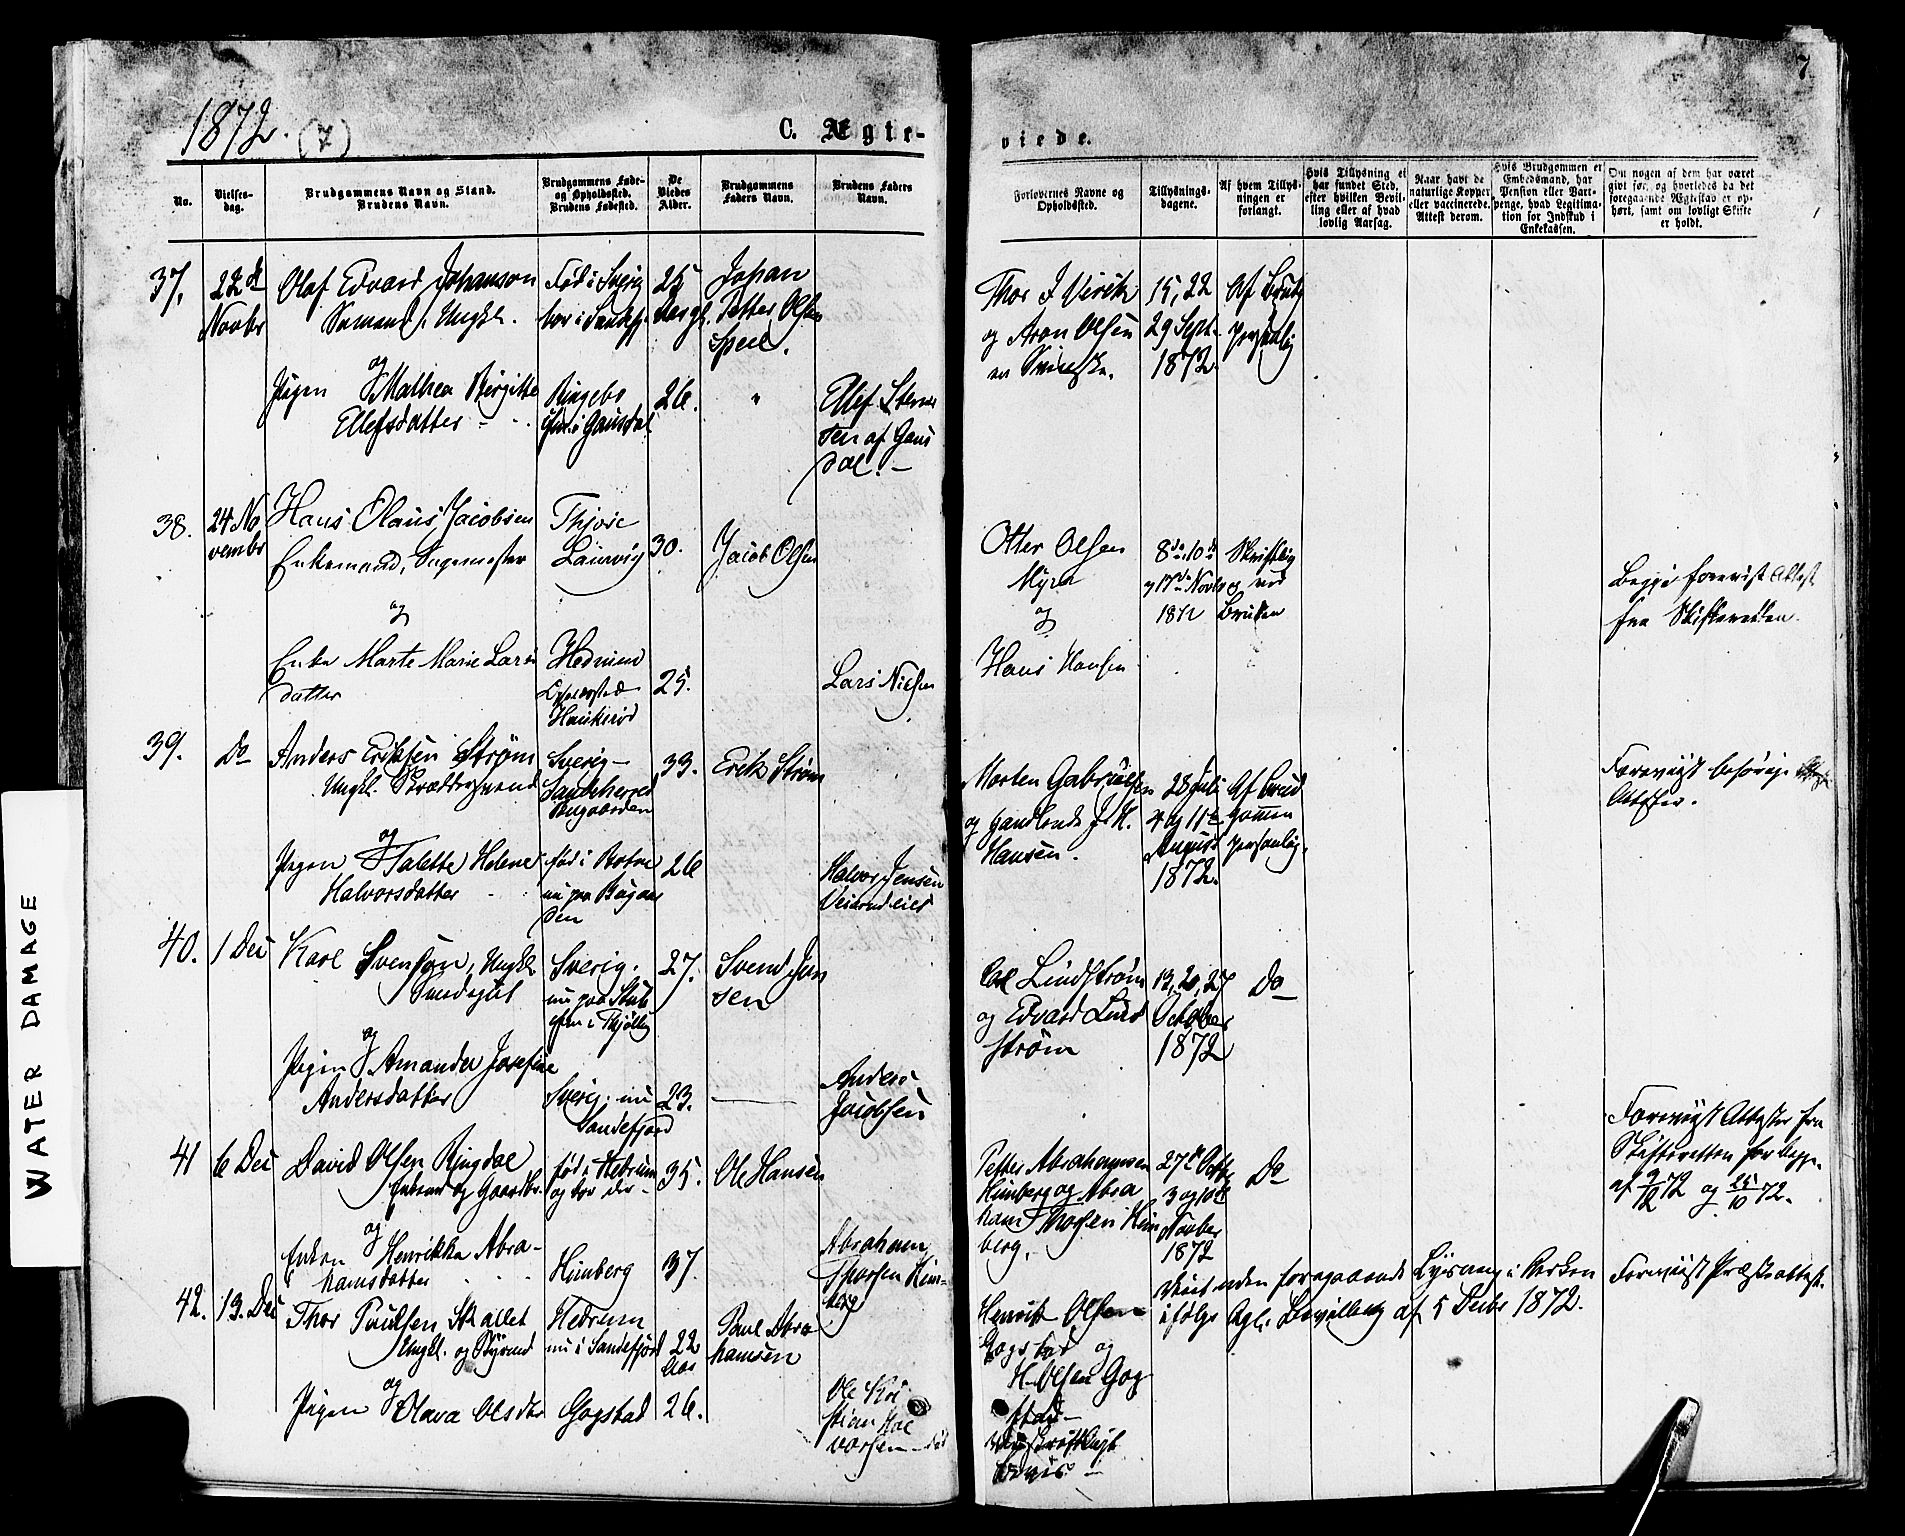 1872. (7)
C. Ægte-
viede.
7
No.
Vielses-
dag.
Brudgommens Navn og Stand.
Brudens Navn.
Brudgommens Føde-
og Opholdssted.
Brudens Fødested.
De
Viedes
Alder.
Brudgommens
Faders Navn.
Brudens Faders
Navn.
Forlovernes Navne og
Opholdssted.
Tillysnings-
dagene.
Af hvem Tillys-
ningen er
forlangt.
Hvis Tillysning ei
har fundet Sted,
efter hvilken Bevil-
ling eller af hvad
lovlig Aarsag.
Naar havt de
naturlige Kopper
eller vaccinerede.
Attest derom.
Hvis Brudgommen er
Embedsmand, har
Pension eller Vart-
penge, hvad Legitima-
tion for Indskud i
Enkekassen.
Om nogen af dem har været
gift før, og hvorledes da det
foregaaende Ægteskab er op-
hørt, samt om lovligt Skifte
er holdt.
37.
22de
Novbr
Olaf Edvard Johanson
Sømand, Ungkl.
og
Pigen Mathea Birgitte
Ellefsdatter
Fød i Sverig
bor i Sandefj.
Ringebo
i Gausdal
25
26.
Johan
Petter Olsen
"
Ellef Stens
sen af Gaus
dal.
Thor J Virik
og Aron Olsen
15, 22
29 Sept.
1872.
Af Brudg
personlig
38.
24 No
vembr
Hans Olaus Jacobsen
Enkemand, Sagmester
og
Enke Marte Marie Lars
datter
Laurvig
Hedrum
Opholdssted
Haukerød
30.
25.
Jacob Olsen
Lars Nielsen
Otter Olsen
Myra
og
Hans Hansen
8de 10de
og 17de Novbr
1872
Skriftlig
og ved
Bruden
Begge forevist Attest
fra Skifteretten.
39.
Do
Anders Eriksen Strøm
Ungkl. Skræddersvend
og
Pigen Talette Helene
Halvorsdatter
Sverig
Sandeherred
Bugaarden
fød i Botne
nu paa Bugaar
den
33.
26
Erik Strøm
Halvor Jensen
Morten Gabrielsen
og Handlende J. H.
Hansen.
28 Juli
4 og 11te
August
1872.
Af Brud
gommen
personlig.
Foreviist behørige
Attester.
40.
1 Dec
Karl Svenson, Ungkl.
Smedegut
og
Pigen Amanda Josefine
Andersdatter
Sverig.
nu paa
i Thjølling
Sverig. nu
Sandefjord
27.
23.
Svend Jen
sen
Anders
Jacobsen
Carl Lindstrøm
og Edvard Lind
strøm
13, 20, 27
October
1872
Do
41
6 Dec
David Olsen Ringdal
Enkemd og Gaardbr.
og
Enken Henrikka Abra-
hamsdatter
fød i Hedrum
og bor der
Himberg
35.
37.
Ole Hansen
Abraham
Thorsen Him-
berg
Petter Abrahamsen
Himberg og Abra
ham Thorsen Him
berg.
27de Octbr
3 og 10de
Novber
1872
Do
Foreviist Attester fra
Skifteretten for begge
af 9/12 72 og 25/10 72.
42.
13. Dec
Thor Paulsen Skallet
Ungkl. og Styrmd
og
Pigen Olava Olsdtr
Hedrum
nu i Sandefjord
Gogstad
22
Aar
26.
Paul Abra
hamsen
Ole Kri
stian Hal
vorsen
Henrik Olsen
Gogstad og
H. Olsen Gog
stad
Viet uden foregaaende Lysning i Kirken
ifølge Kgl. Bevilling af 5 Decbr 1872.
Foreviist Præsteattest.
WATER DAMAGE